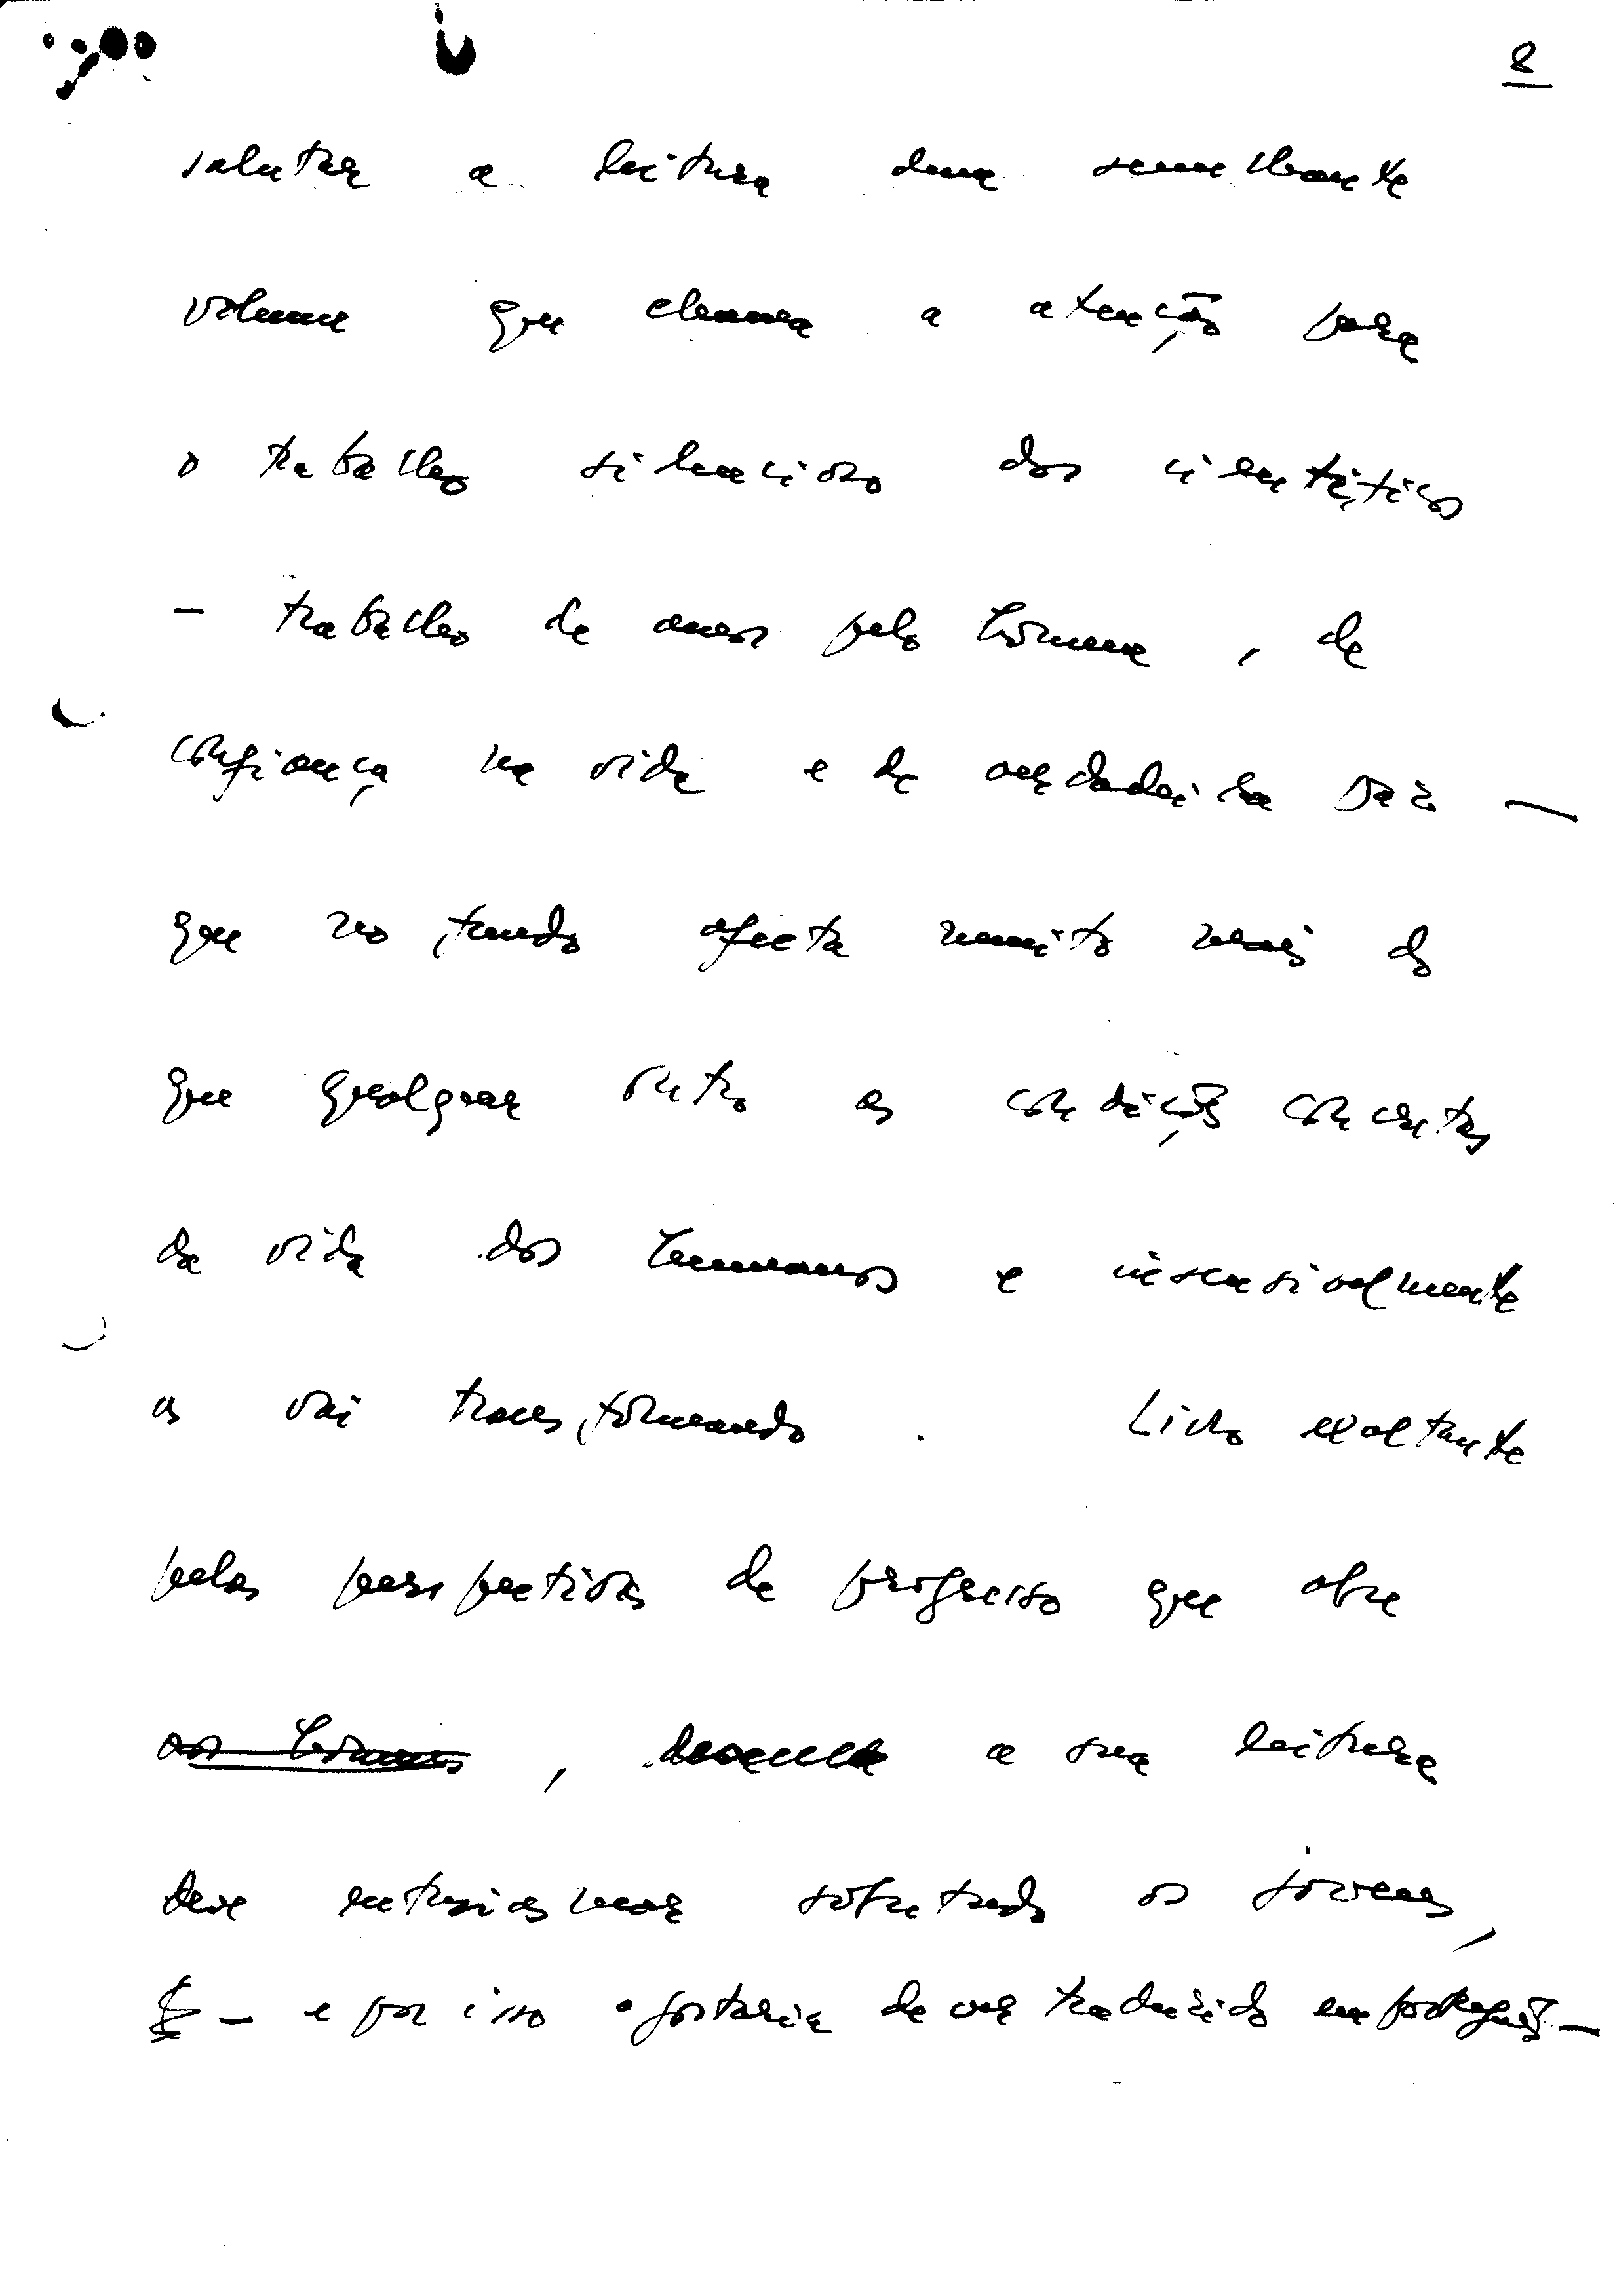 8
salutar a leitura duma semelhante
volume que chama a atenção para
o trabalho silencioso dos cientistas
- trabalho de amor pelo homem, de
confiança na vida e de verdadeira paz —
que no fundo afecta muito mais do
que qualquer outro as condições concretas
da vida dos humanos e insensivelmente
as vai transformando. Livro exaltante
pelas perspectivas de progresso que abre
aos homens, a sua leitura
deve entusiasmar sobretudo os jovens,
— e por isso o gostaria de ver traduzido em português —